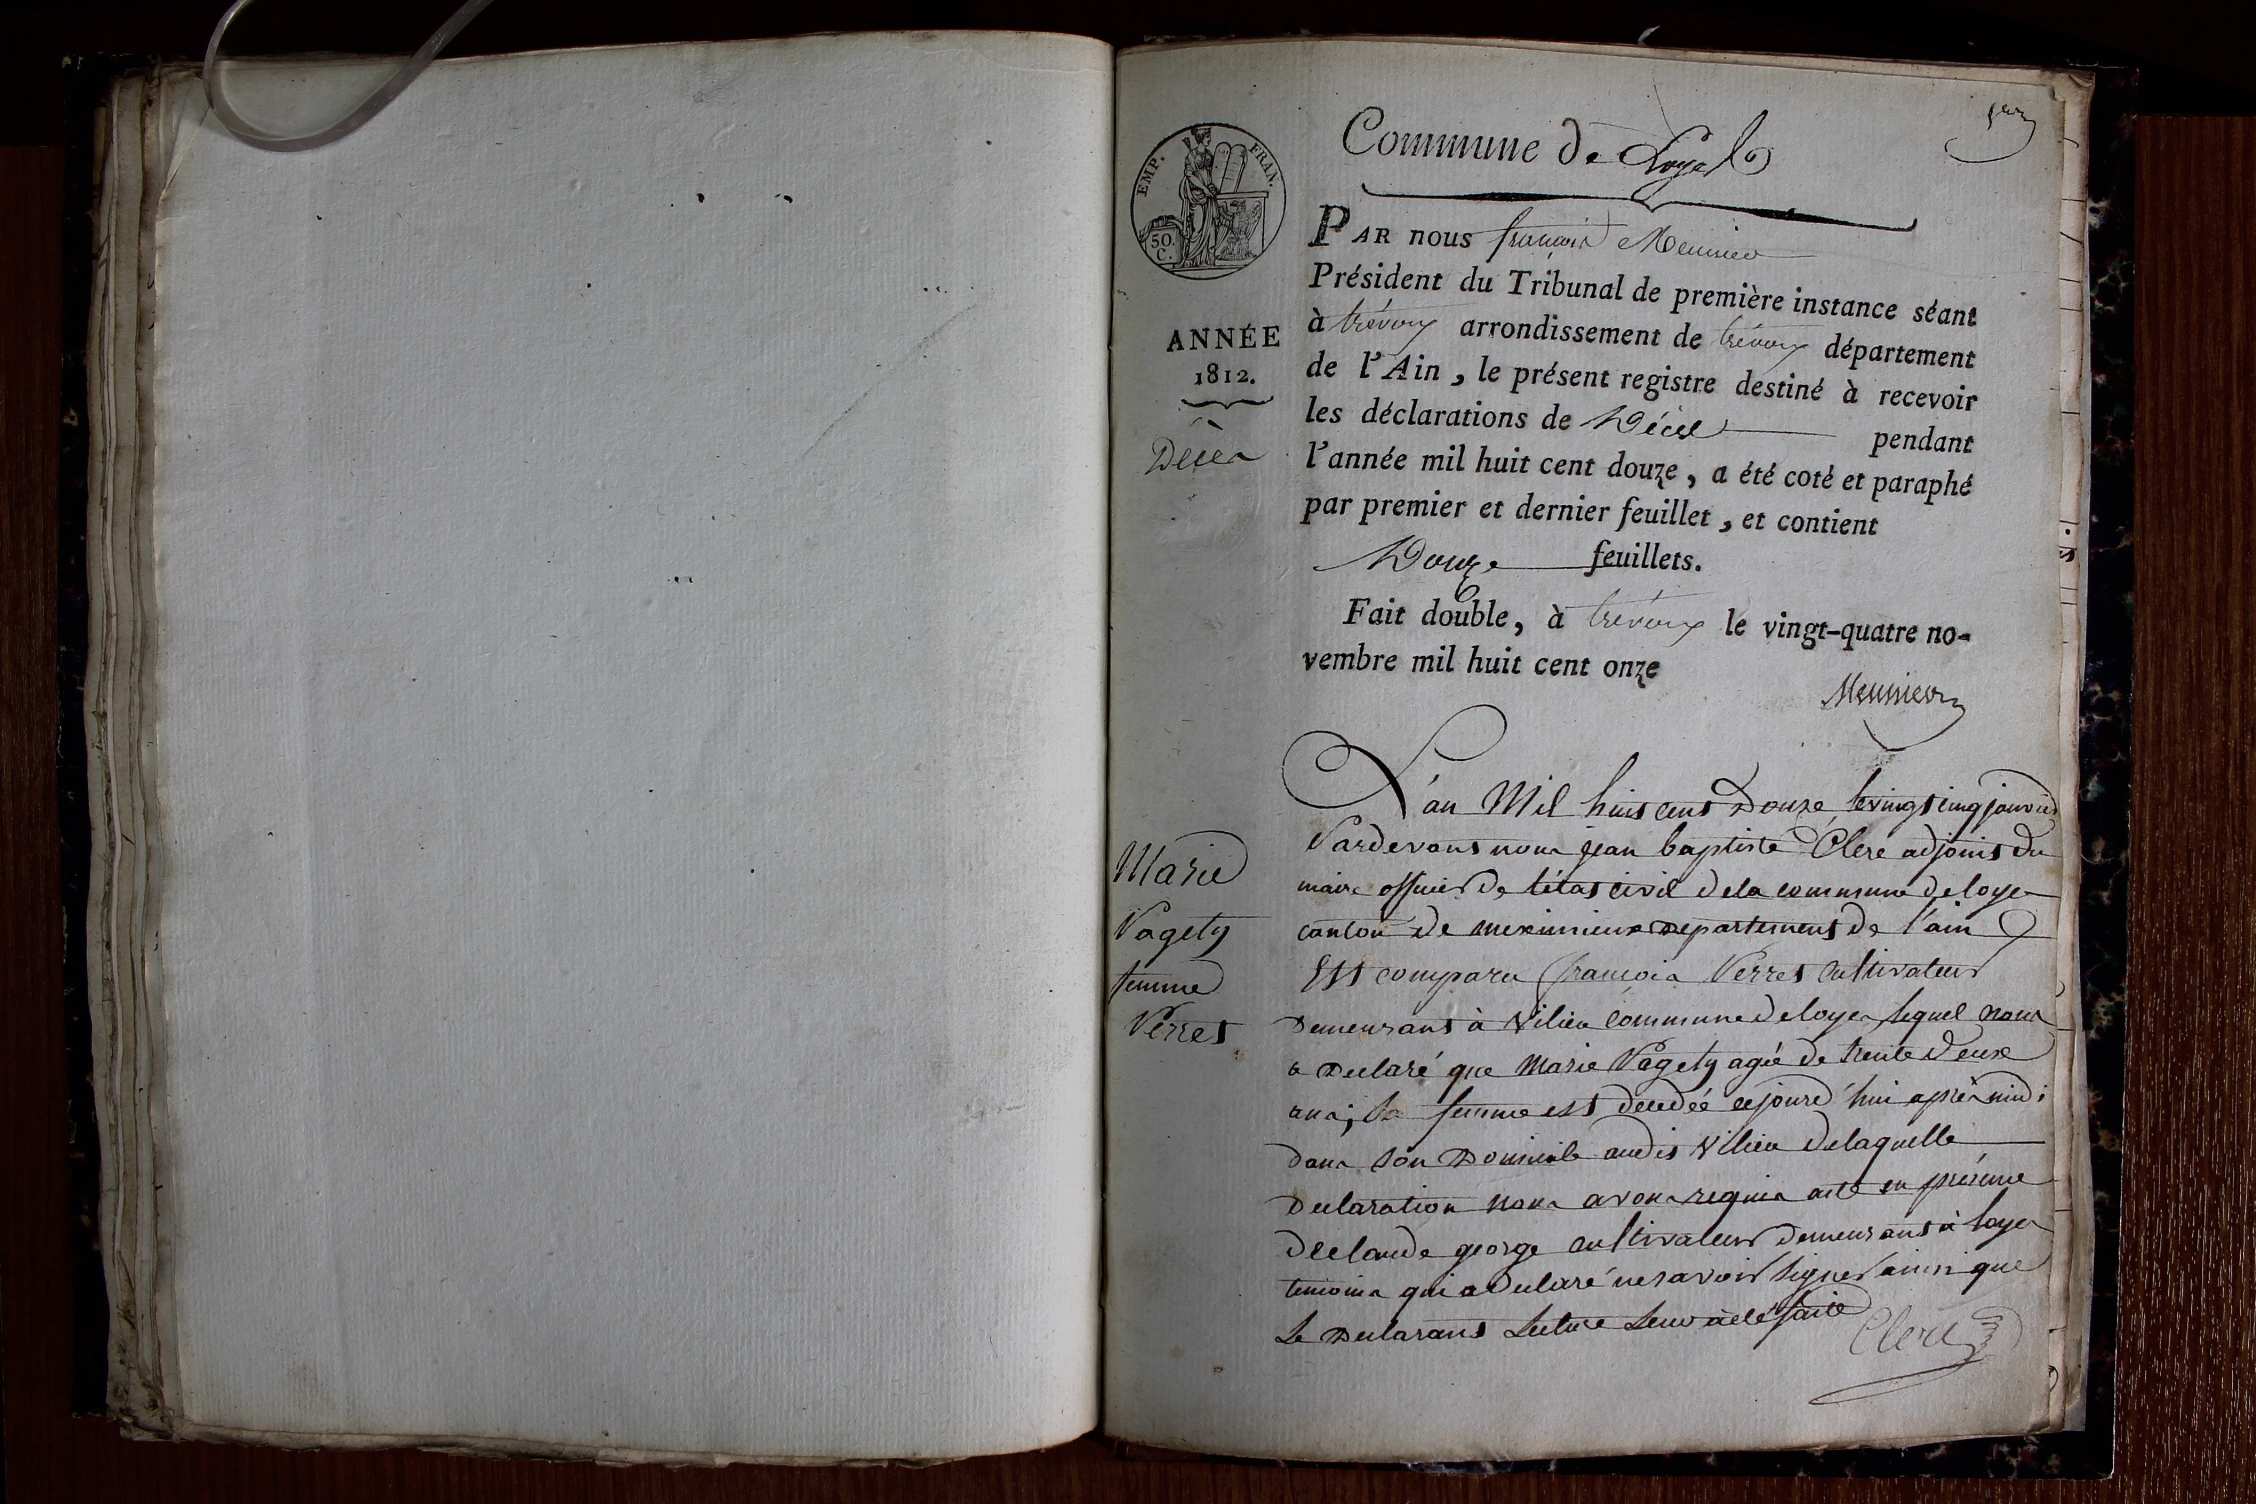 1er
Commune de Loyes
EMP. FRAN.
50.
C.
PAR nous françois Meunier
Président du Tribunal de première instance séant
à trévoux arrondissement de trévoux département
de l'Ain, le présent registre destiné à recevoir
les déclarations de Décès pendant
l'année mil huit cent douze, a été coté et paraphé
par premier et dernier feuillet, et contient
Douze feuillets.
Fait double, à trévoux le vingt-quatre no-
vembre mil huit cent onze
Meunier
ANNÉE
1812.
Décès
L'an Mil huit cent Douze, le vingt cinq janvier
Pardevant nous jean baptiste Clerc adjoint du
maire officier de l'état civil de la commune de loyes
canton de meximieux Departement de l'ain
Est comparu françois Verret Cultivateur
Demeurant à Vilieu Commune de loyes lequel nous
a Declaré que Marie Pagety agée de trente Deux
ans, Sa femme est decedée cejourd'hui après midi
dans son Domicile audit Vilieu De laquelle
Declaration nous avons requis acte en présence
De Claude george cultivateur Demeurant à loyes
temoins qui a Declaré ne savoir signer ainsi que
Le Declarant Lecture Leur a été faite
Clerc
Marie
Pagety
femme
Verret